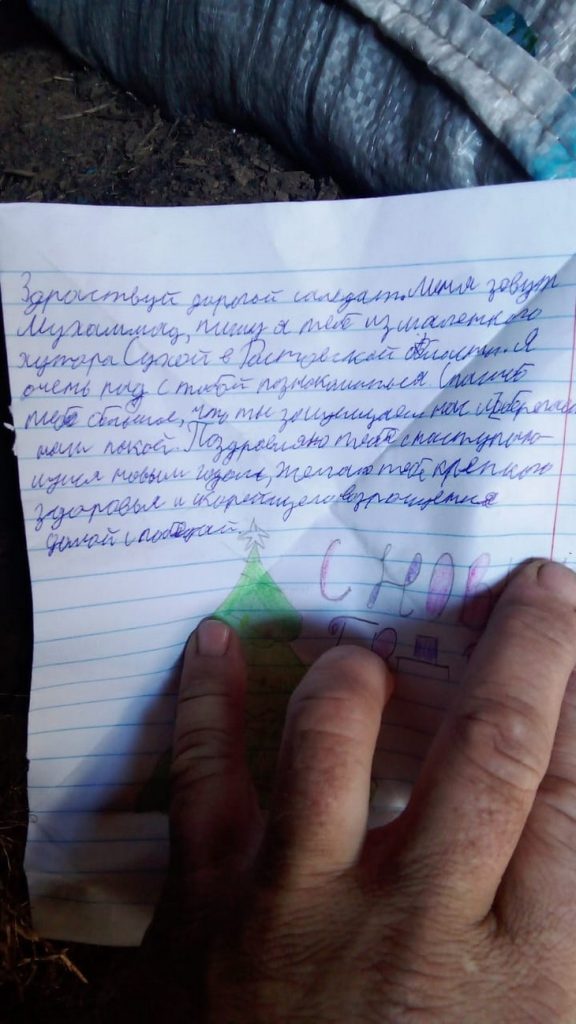 Здраствуй дорогой саледат. Миня зовут
Мухаммад, пишу я тебе из маленького
хутора Сухой в Ростовской области. Я
очень рад с тобой познакомиться. Спасиб
тебе обльшое, что ты защищаеш нас
наш покой. Поздровляю тебя с наступаю-
щися новым годом, желаю тебе крепкого
здоровья и скорейшего возрощения
домой с победай.
С НОВ
ГО